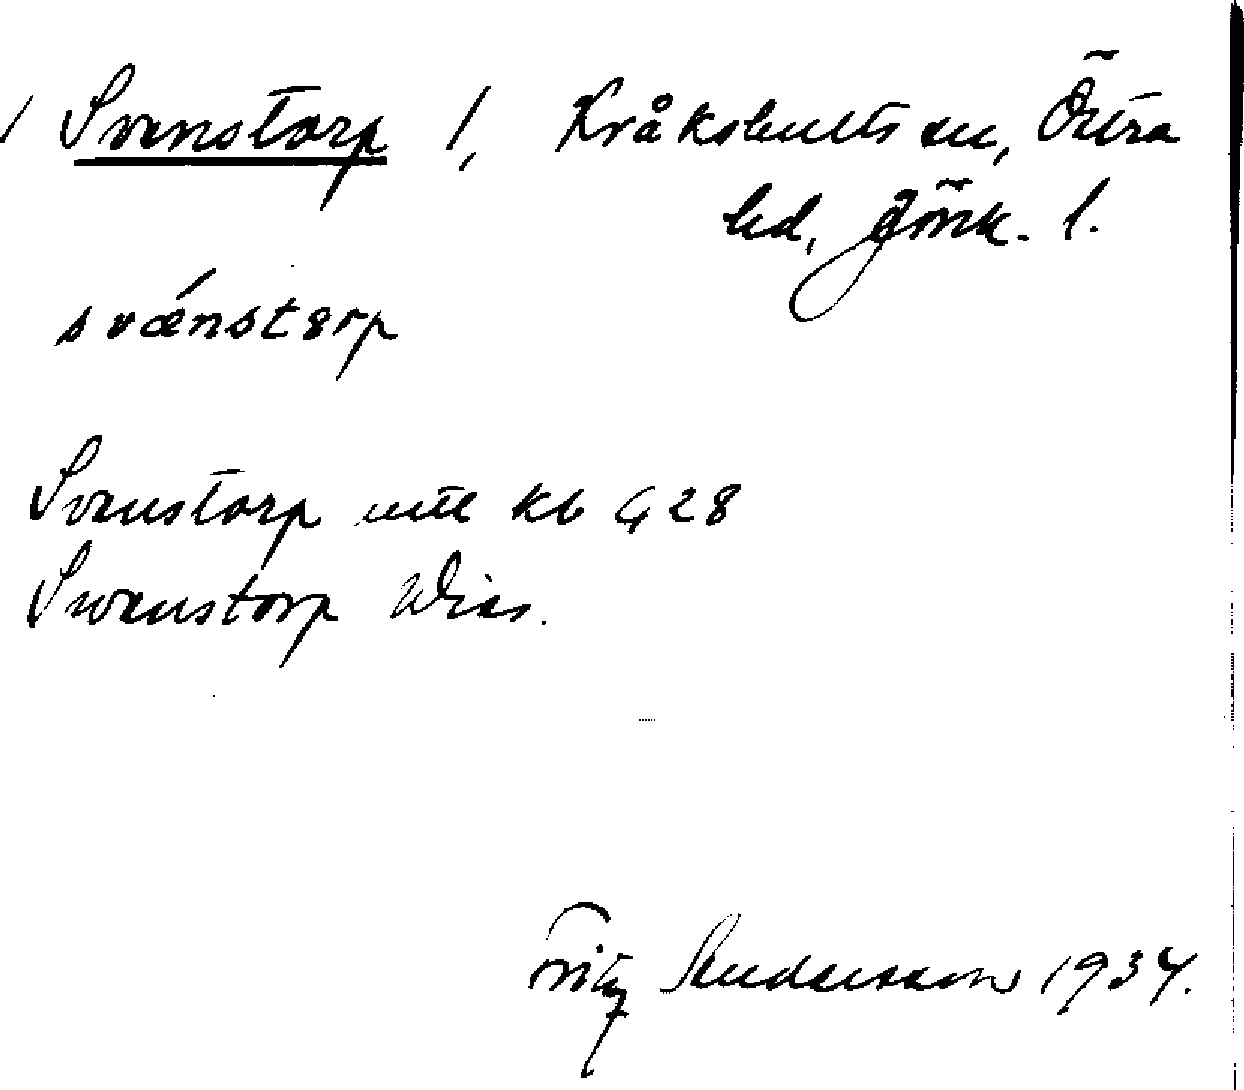 Svenstorp 1, Kråkshults sn, Östra
hd, Jönk. l.
svǽnstɘrp
Svenstorp utt kb G 28
Swenstorp Wies.
Fritz Andersson 1934.